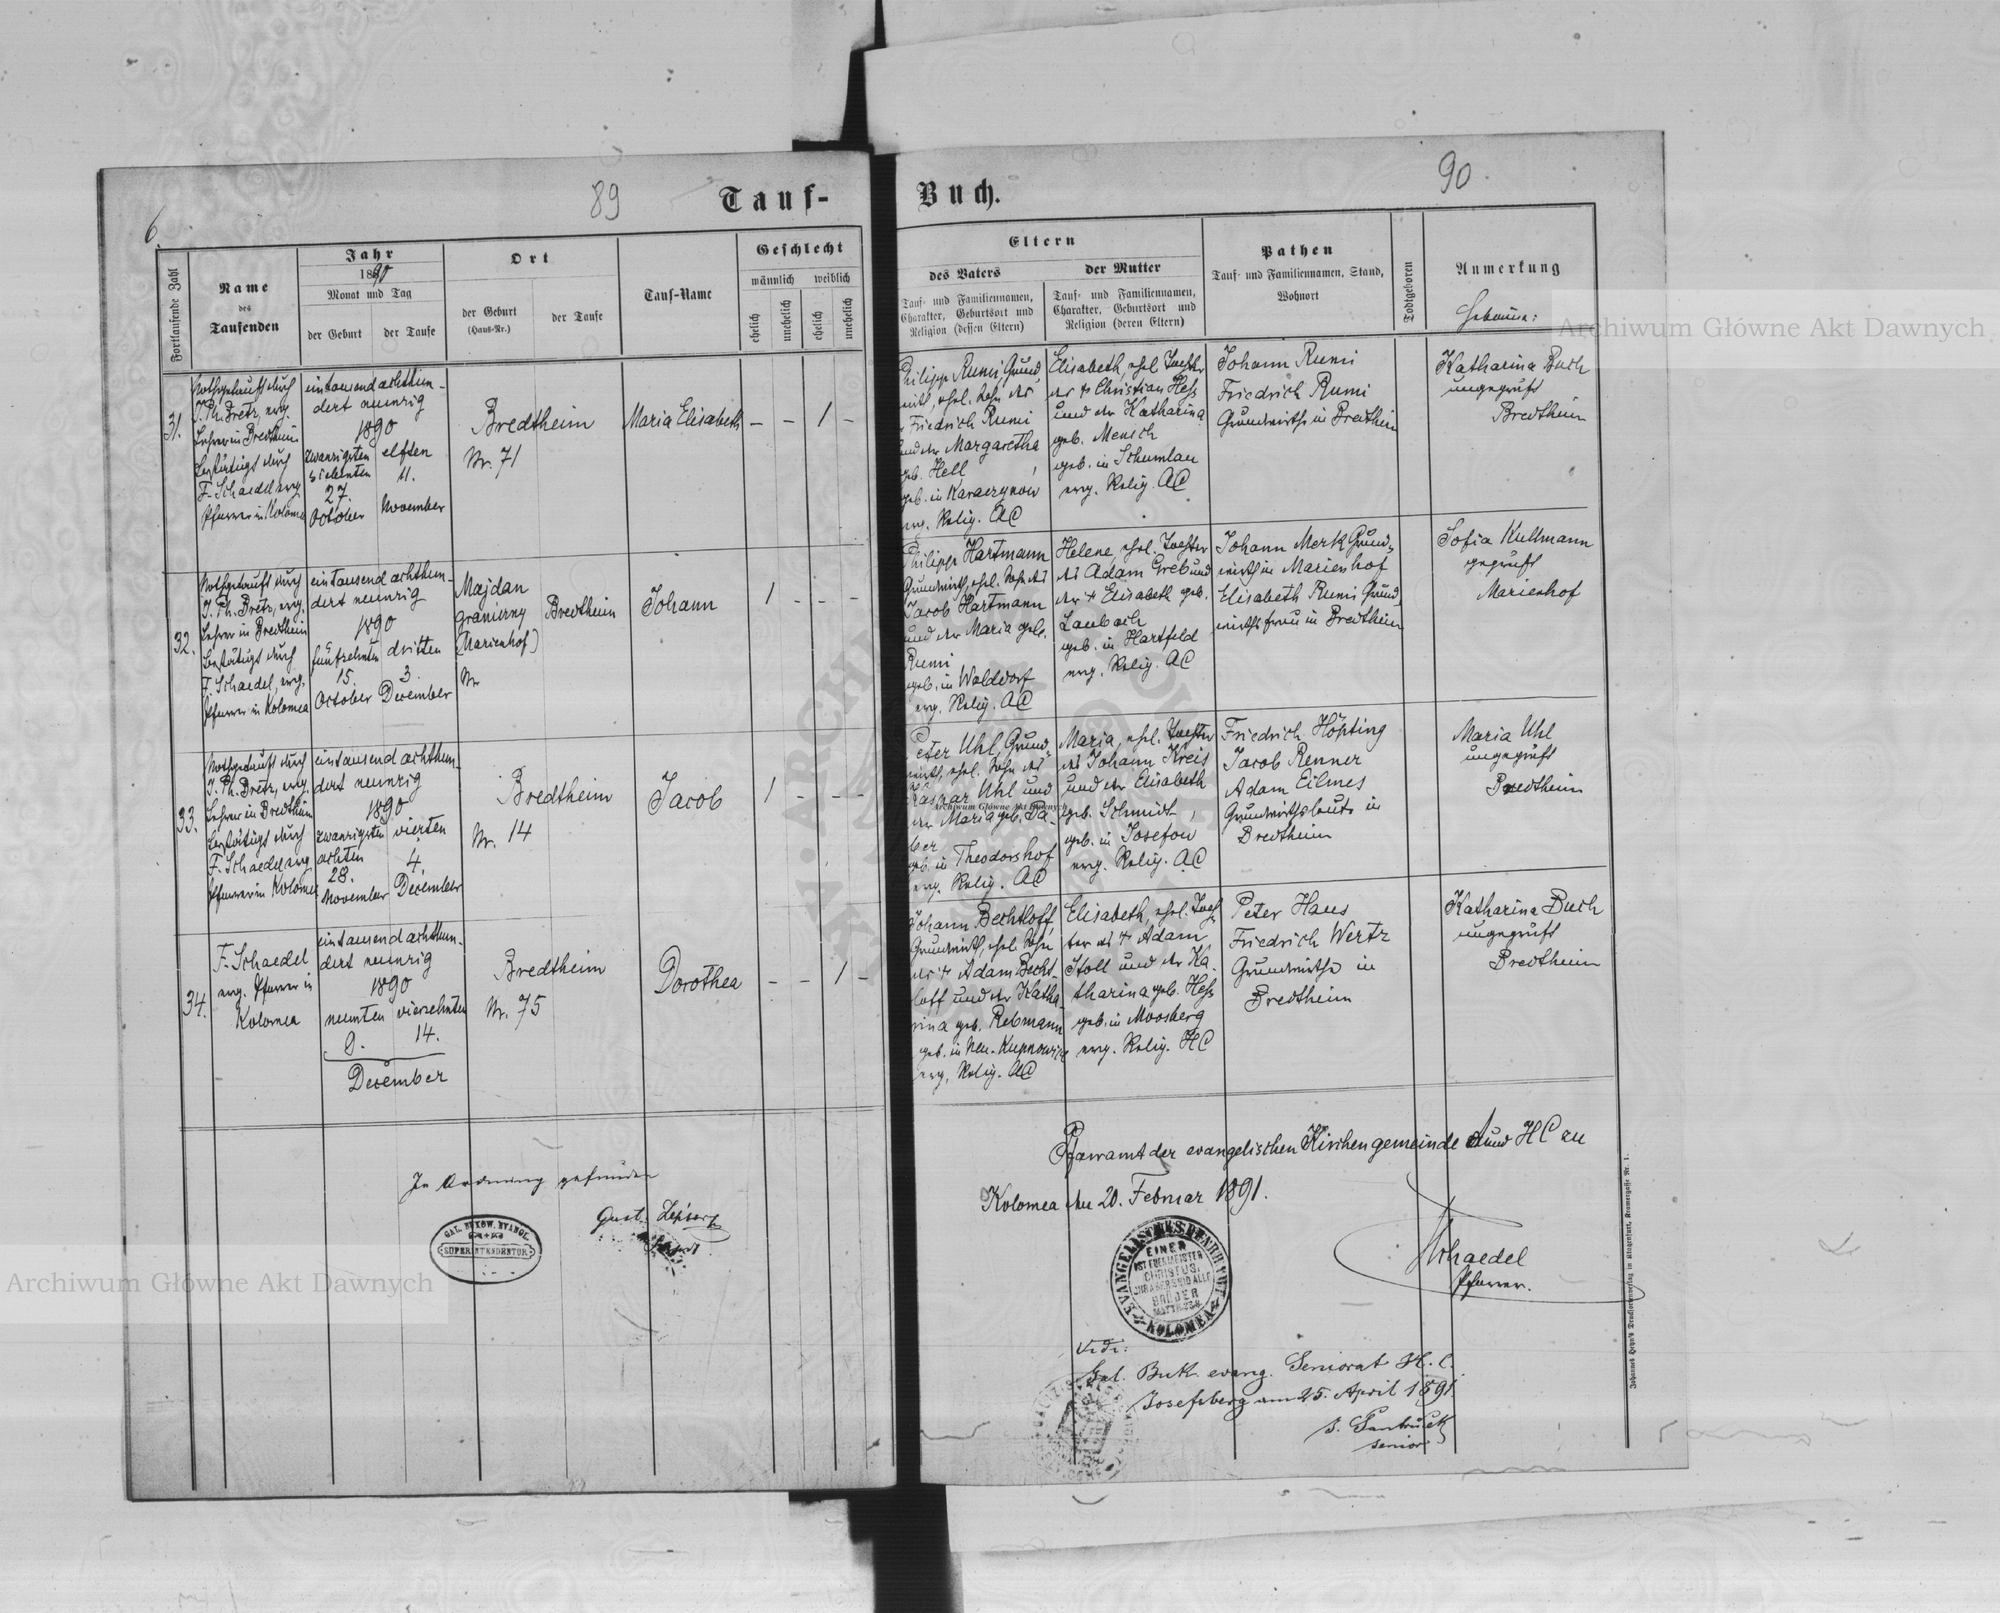 89
Tauf-
Buch.
90
6.
Fortlaufende Zahl
Name
des
Taufenden
Jahr
1890
Monat und Tag
der Geburt
der Taufe
Ort
der Geburt
(Haus-Nr.)
der Taufe
Tauf-Name
Geschlecht
männlich
weiblich
ehelich
unehelich
ehelich
unehelich
Eltern
des Vaters
Tauf- und Familiennamen,
Charakter, Geburtsort und
Religion (dessen Eltern)
der Mutter
Tauf- und Familiennamen,
Charakter, Geburtsort und
Religion (deren Eltern)
Pathen
Tauf- und Familiennamen, Stand,
Wohnort
Todtgeboren
Anmerkung
Hebamme:
31.
Nothgetauft durch
J. Ph. Bretz, evg.
Lehrer in Bredtheim
bestätigt durch
F. Schaedel evg.
Pfarrer in Kolomea
eintausend achthun-
dert neunzig
1890
zwanzigsten
siebenten
27.
October
elften
11.
November
Bredtheim
Nr. 71
Maria Elisabeth
— — 1 —
Philipp Rumi Grund
wirth, ehel. Sohn des
Friedrich Rumi
und der Margaretha
geb. Hell
geb. in Karaczynow
evg. Relig. AC
Elisabeth, ehel. Tochter
des † Christian Heß
und der Katharina
geb. Mensch
geb. in Schumlau
evg. Relig. AC
Johann Rumi
Friedrich Rumi
Grundwirthe in Bredtheim
Katharina Buch
ungeprüft
Bredtheim
32.
Nothgetauft durch
J. Ph. Bretz, evg.
Lehrer in Bredtheim
bestätigt durch
F. Schaedel, evg.
Pfarrer in Kolomea
eintausend achthun-
dert neunzig
1890
fünfzehnten
15.
October
dritten
3.
December
Majdan
graniczny
(Marienhof)
Nr
Bredtheim
Johann
1 - - -
Philipp Hartmann
Grundwirth, ehel. Sohn des
Jacob Hartmann
und der Maria geb.
Rumi
geb. in Walddorf
evg. Relig. AC
Helene, ehel. Tochter
des Adam Greb und
der † Elisabeth geb.
Laubach
geb. in Hartfeld
evg. Relig. AC
Johann Merk Grund-
wirth in Marienhof
Elisabeth Rumi Grund
wirthsfrau in Bredtheim
Sofia Kullmann
geprüft
Marienhof
33.
Nothgetauft durch
J. Ph. Bretz, evg.
Lehrer in Bredtheim
bestätigt durch
F. Schaedel evg.
Pfarrer in Kolomea
eintausend achthun-
dert neunzig
1890
zwanzigsten
achten
28.
November
vierten
4.
December
Bredtheim
Nr. 14
Jacob
1 - - -
Peter Uhl, Grund-
wirth, ehel. Sohn des
Kaspar Uhl und
der Maria geb. Da-
ber
geb. in Theodorshof
evg. Relig. AC
Maria, ehel. Tochter
des Johann Kreis
und der Elisabeth
geb. Schmidt
geb. in Josefow
evg. Relig. AC
Friedrich Höpting
Jacob Renner
Adam Eilmes
Grundwirthsleute in
Bredtheim
Maria Uhl
ungeprüft
Bredtheim
34.
F. Schaedel
evg. Pfarrer in
Kolomea
eintausend achthun-
dert neunzig
1890
neunten
9.
vierzehnten
14.
December
Bredtheim
Nr. 75
Dorothea
- - 1 -
Johann Bechtloff,
Grundwirth, ehel. Sohn
des † Adam Becht-
loff und der Katha-
rina geb. Rebmann
geb. in Neu-Kupnowice
evg. Relig. AC
Elisabeth, ehel. Toch-
ter des † Adam
Stoll und der Ka-
tharina geb. Heß
geb. in Moosberg
evg. Relig. HC
Peter Haus
Friedrich Wertz
Grundwirthe in
Bredtheim
Katharina Buch
ungeprüft
Bredtheim
Pfarramt der evangelischen Kirchengemeinde A und HC zu
Kolomea den 20. Februar 1891.
FSchaedel
Pfarrer.
In Ordnung gefunden
GAL. BUKOW. EVANGL.
SUPERINTENDENTUR
EVANGELISCHES PFARRAMT
KOLOMEA
EINER
IST EUER MEISTER
CHRISTUS,
IHR ABER SEID ALLE
BRÜDER
MATTH. 23.8.
Vidi:
Gal. Buk. evang. Seniorat H.C.
Josefsberg am 25. April 1891
Senior
Johannes Heyn's Drucksortenverlag in Klagenfurt, Kramergasse Nr. 1.
Archiwum Główne Akt Dawnych
Archiwum Główne Akt Dawnych
Archiwum Główne Akt Dawnych